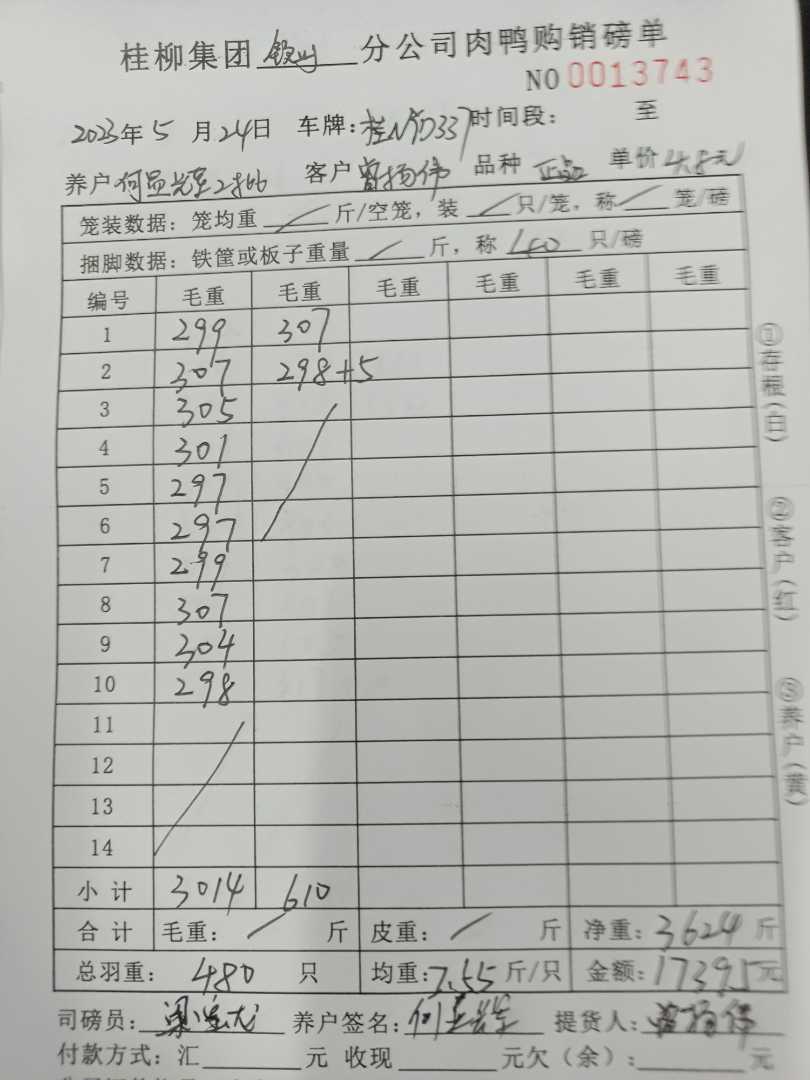 桂柳集团 分公司肉鸭购销磅单
NO 0013743
2023年5月24日 车牌: 桂N 时间段: 至
养户 客户 曾扬伟 品种 正品 单价 4.8元
笼装数据: 笼均重 / 斤/空笼, 装 / 只/笼, 称 / 笼/磅
捆脚数据: 铁筐或板子重量 / 斤, 称 只/磅
编号 毛重 毛重 毛重 毛重 毛重 毛重
1 299 307
2 307 298+5
3 305
4 301
5 297
6 297
7 299
8 307
9 304
10 298
11
12
13
14
小计 3014 610
合计 毛重: / 斤 皮重: / 斤 净重: 3624 斤
总羽重: 480 只 均重: 7.55 斤/只 金额: 17395 元
司磅员: 养户签名: 提货人: 曾扬伟
付款方式: 汇 元 收现 元欠(余): 元
①存根(白)
②客户(红)
③养户(黄)